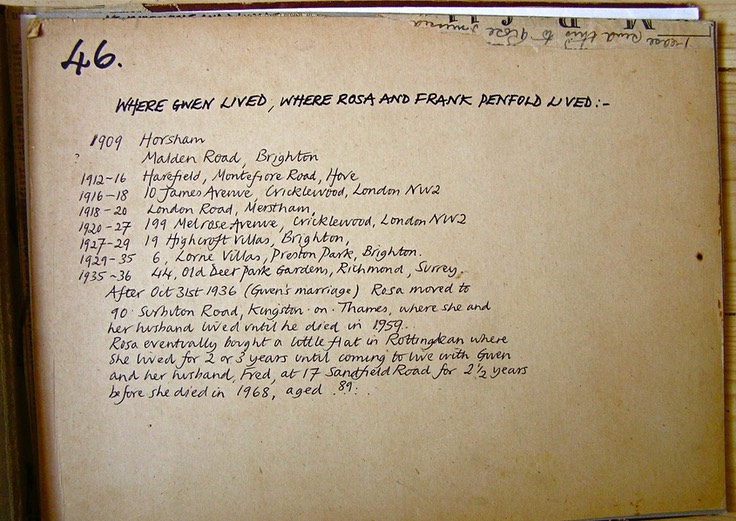 Please send this to Rose
46.
WHERE GWEN LIVED, WHERE ROSA AND FRANK PENFOLD LIVED:-
1909 Horsham
? Malden Road, Brighton
1912-16 Harefield, Montefiore Road, Hove
1916-18 10 James Avenue, Cricklewood, London NW2
1918-20 London Road, Merstham,
1920-27 199 Melrose Avenue, Cricklewood, London NW2
1927-29 19 Highcroft Villas, Brighton,
1929-35 6, Lorne Villas, Preston Park, Brighton.
1935-36 44, Old Deer Park Gardens, Richmond, Surrey.
After Oct 31st 1936 (Gwen's marriage) Rosa moved to
90 Surbiton Road, Kingston-on-Thames, where she and
her husband lived until he died in 1959..
Rosa eventually bought a little flat in Rottingdean where
she lived for 2 or 3 years until coming to live with Gwen
and her husband, Fred, at 17 Sandfield Road for 2½ years
before she died in 1968, aged .89..